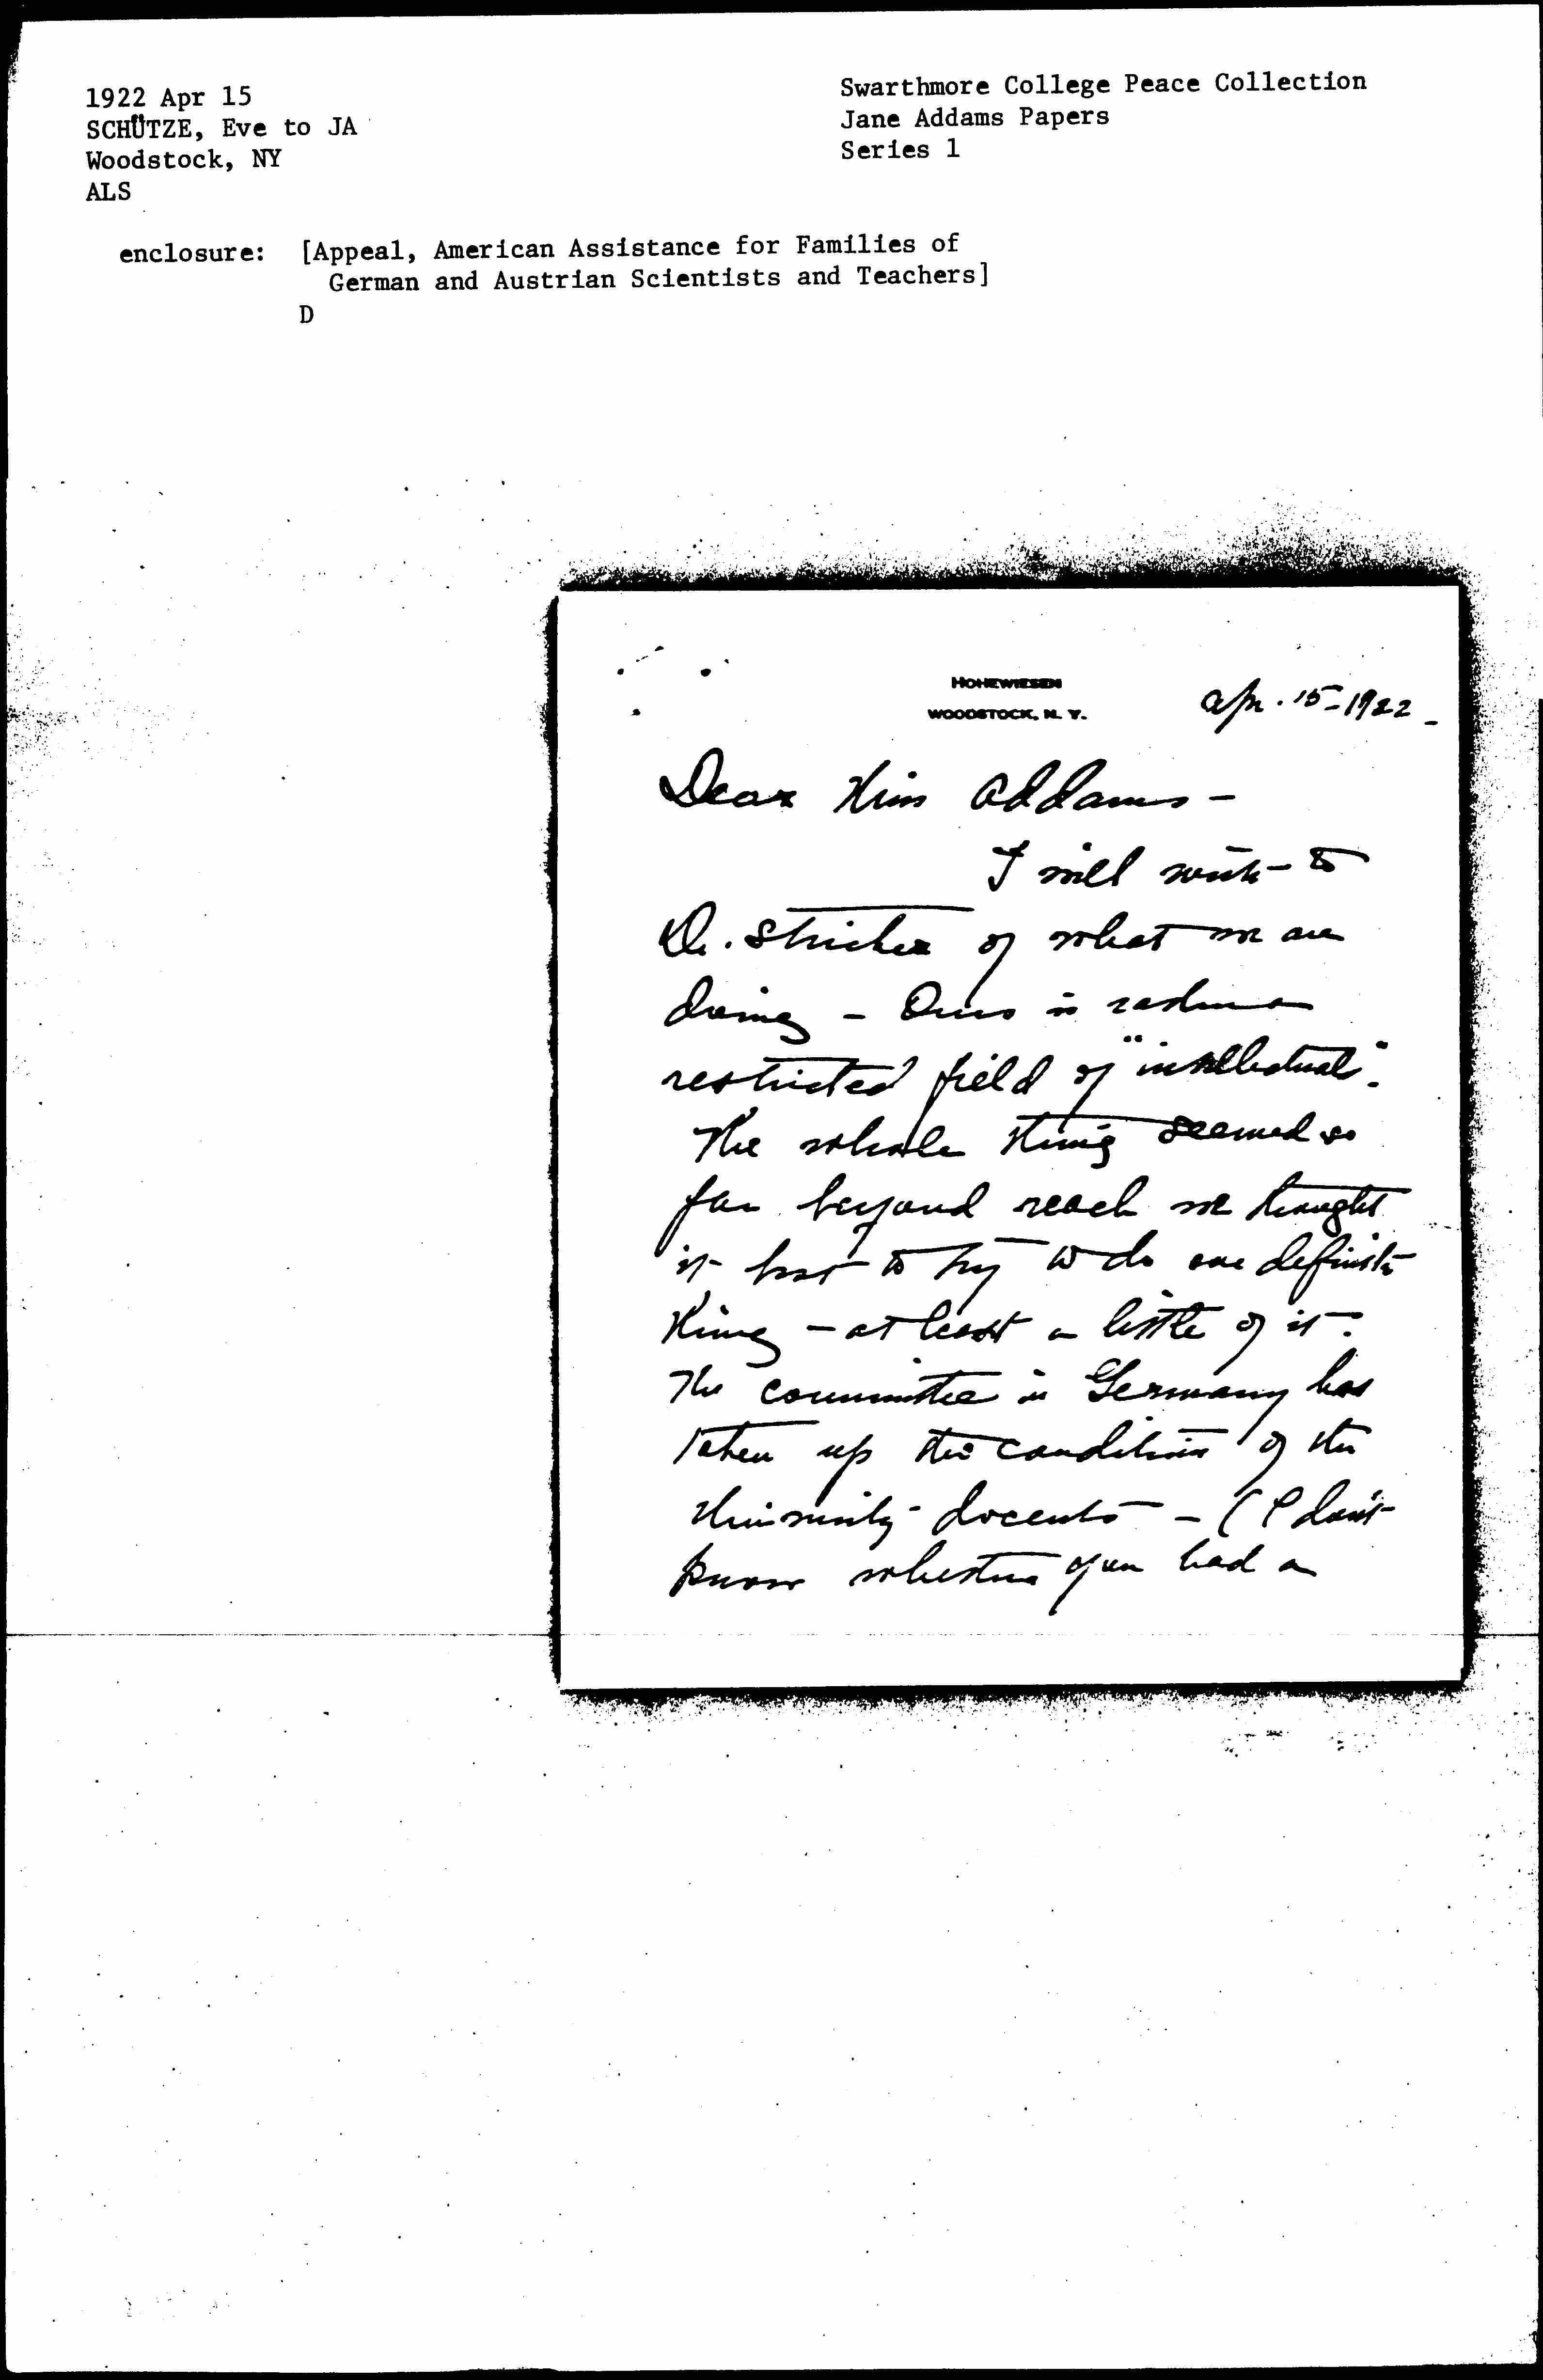 1922 Apr 15
SCHÜTZE, Eve to JA
Woodstock, NY
ALS
Swarthmore College Peace Collection
Jane Addams Papers
Series 1
enclosure: [Appeal, American Assistance for Families of
German and Austrian Scientists and Teachers]
D
HOHEWIESEN
WOODSTOCK, N. Y.
Apr. 15-1922-
Dear Miss Addams-
I will write to
Dr. Stricker of what we are
doing - Ours is rather a
restricted field of "intellectuals".
The whole thing seemed so
far beyond reach we thought
it best to try to do one definite
thing - at least a little of it.
The committee in Germany has
taken up the condition of the
University docents - (I don't
know whether you had a